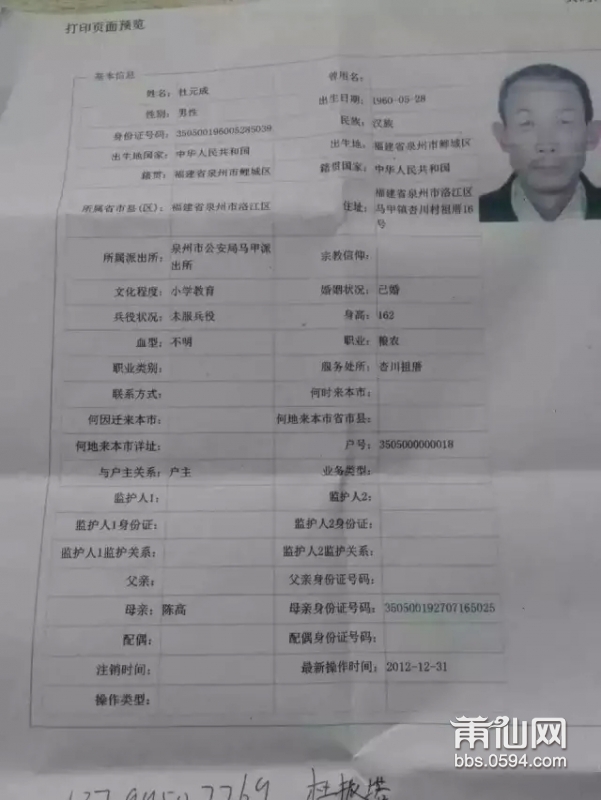 打印页面预览
基本信息
姓名: 杜元成 曾用名:
性别: 男性 出生日期: 1960-05-28
身份证号码: 350500196005285039 民族: 汉族
出生地国家: 中华人民共和国 出生地: 福建省泉州市鲤城区
籍贯: 福建省泉州市鲤城区 籍贯国家: 中华人民共和国
所属省市县(区): 福建省泉州市洛江区 住址: 福建省泉州市洛江区
马甲镇杏川村祖厝16
号
所属派出所: 泉州市公安局马甲派 宗教信仰:
出所
文化程度: 小学教育 婚姻状况: 已婚
兵役状况: 未服兵役 身高: 162
血型: 不明 职业: 粮农
职业类别: 服务处所: 杏川祖厝
联系方式: 何时来本市:
何因迁来本市: 何地来本市省市县:
何地来本市详址: 户号: 3505000000018
与户主关系: 户主 业务类型:
监护人1: 监护人2:
监护人1身份证: 监护人2身份证:
监护人1监护关系: 监护人2监护关系:
父亲: 父亲身份证号码:
母亲: 陈高 母亲身份证号码: 350500192707165025
配偶: 配偶身份证号码:
注销时间: 最新操作时间: 2012-12-31
操作类型:
莆仙网
bbs.0594.com